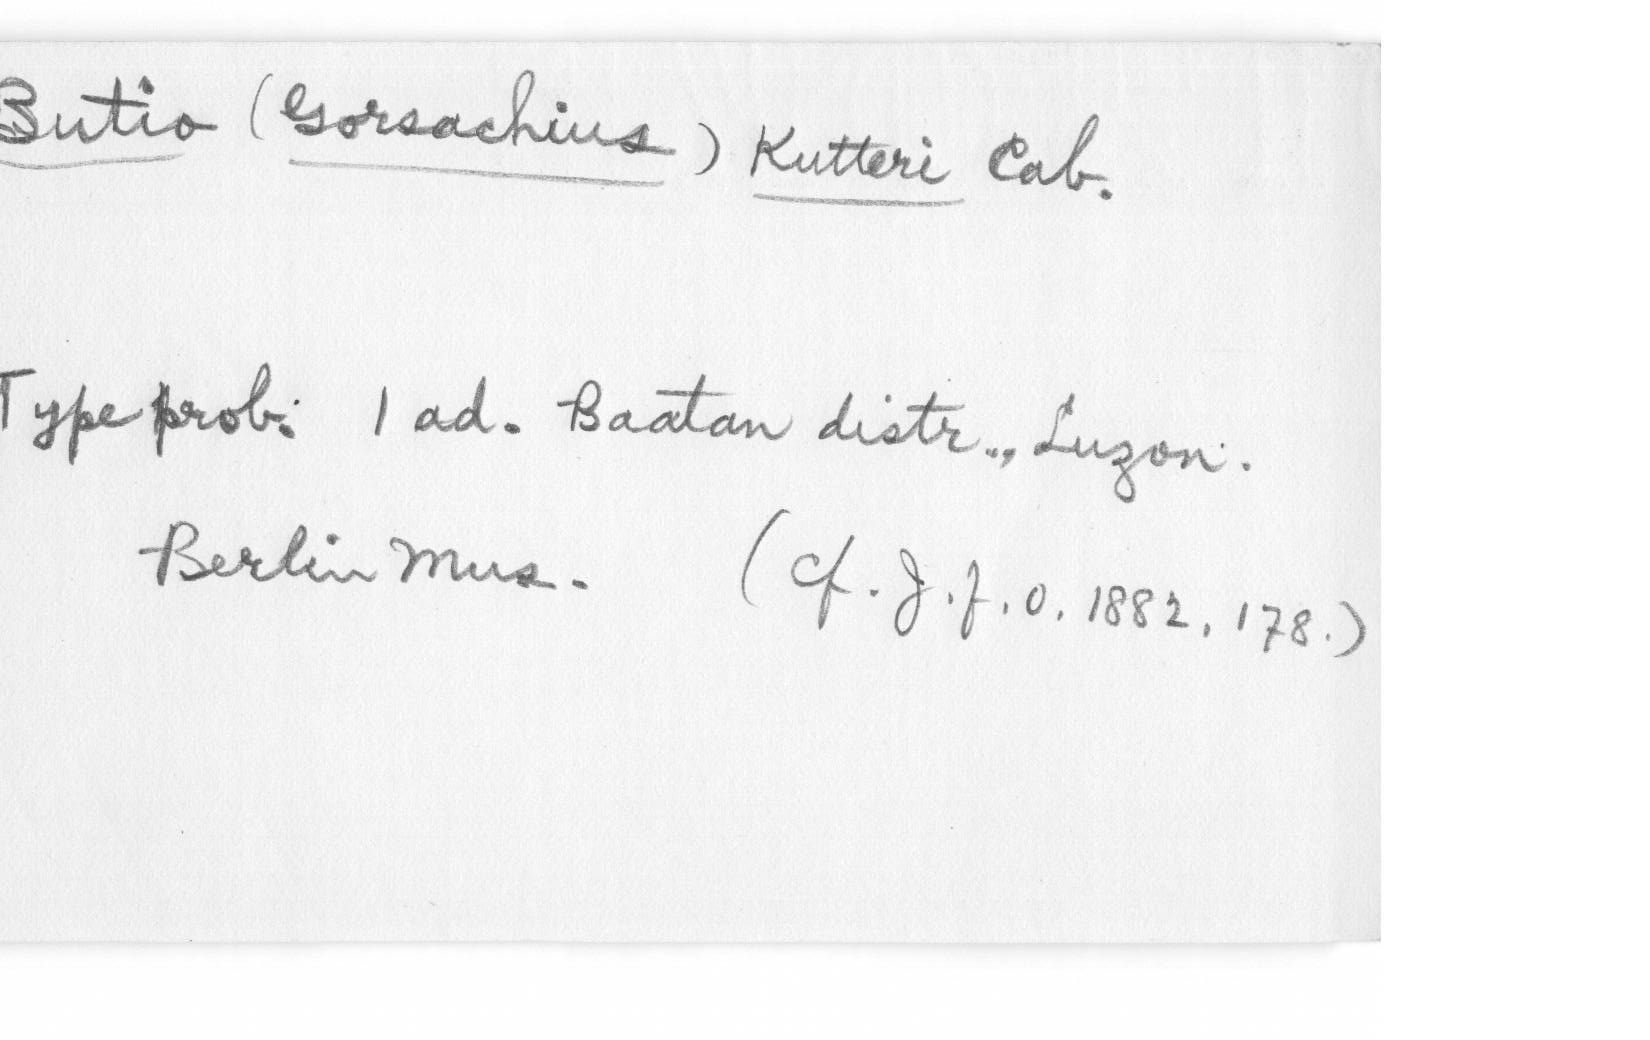 Butio (Gorsachius) Kutteri Cab.
Type prob: 1 ad. Baatan distr., Luzon.
Berlin Mus. (Cf. J.f.O. 1882, 178.)